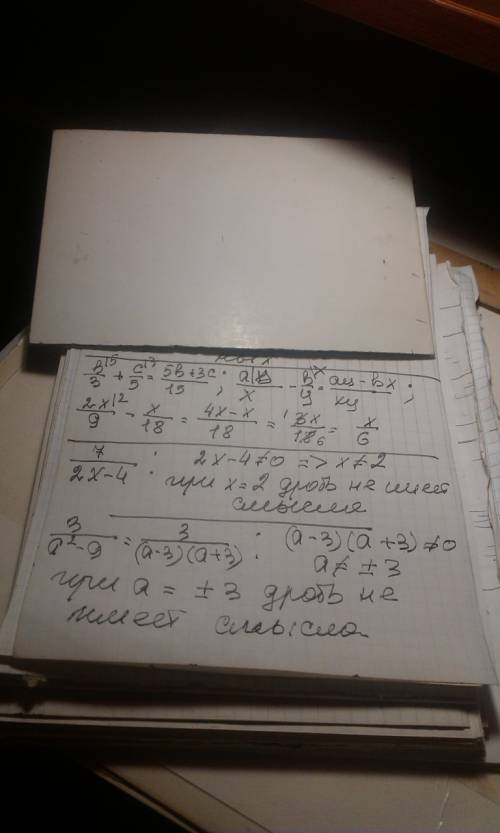 b/3 + c/5 = (5b+3c)/15 ; a/x - b/y = (ay-bx)/xy ;
2x/9 - x/18 = (4x-x)/18 = 3x/18 = x/6
7/(2x-4) : 2x-4≠0 => x≠2
при x=2 дробь не имеет
смысла
3/(a²-9) = 3/((a-3)(a+3)) : (a-3)(a+3)≠0
a≠ ±3
при a = ±3 дробь не
имеет смысла